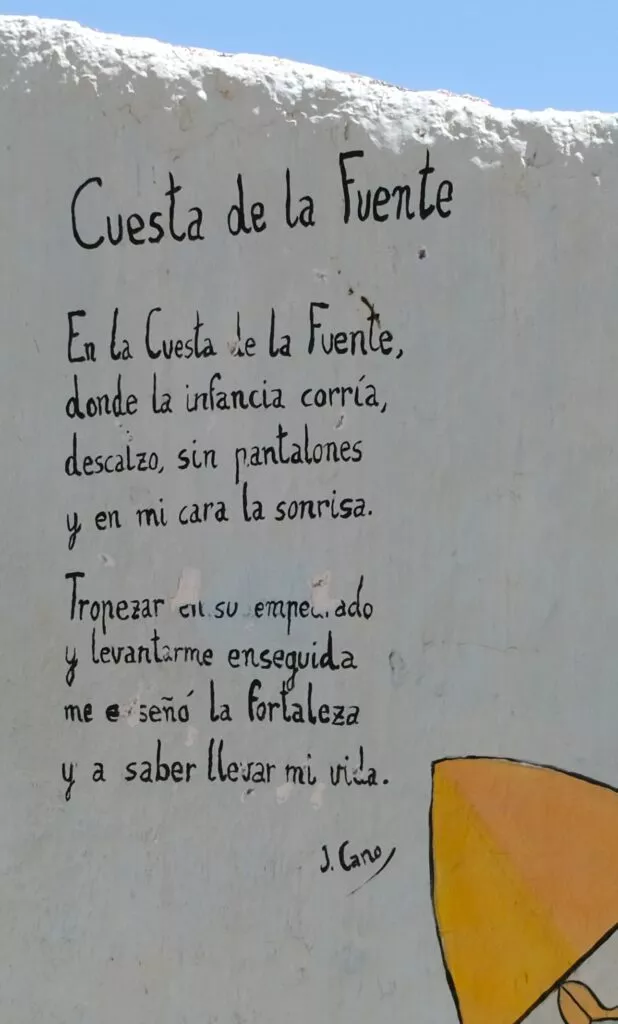 Cuesta de la Fuente
En la Cuesta de la Fuente,
donde la infancia corría,
descalzo, sin pantalones
y en mi cara la sonrisa.
Tropezar en su empedrado
y levantarme enseguida
me enseñó la fortaleza
y a saber llevar mi vida.
J. Cano